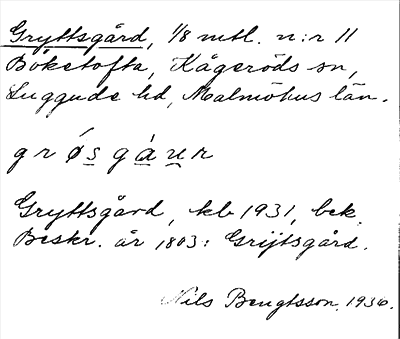 Gryttsgård, 1/8 mtl. n:r 11
Böketofta, Kågeröds sn,
Luggude hd, Malmöhus län.
g r ǿ s g á u r
Gryttsgård, kb 1931, bek.
Beskr. år 1803: Grijtsgård.
Nils Bengtsson, 1936.